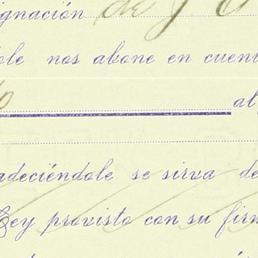 ignación de J
ole nos abone en cuent
al
adeciéndole se sirva de
Ley provisto con su firm